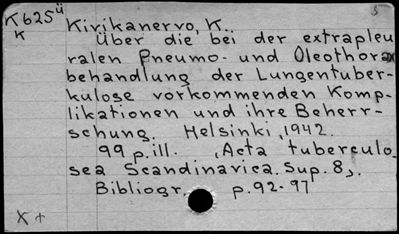 K625ü
K
5
Kivikanervo, K..
Über die bei der extrapleu
ralen Pneumo- und Oleothorax
behandlung der Lungentuber-
kulose vorkommenden Komp-
likationen und ihre Beherr-
schung. Helsinki, 1942.
99 p. ill. (Acta tuberculo
sea Scandinavica. Sup. 8).
Bibliogr. p. 92-97
X +